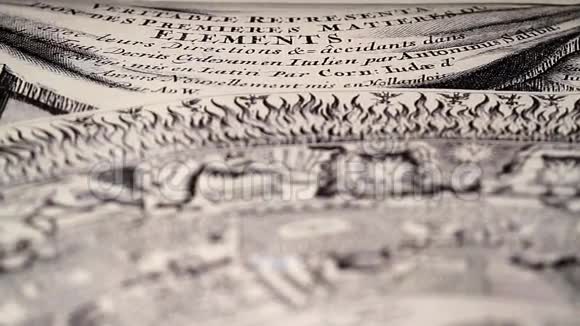 VERITABLE REPRESENTA
ION DES PREMIERES MATIERES OU
ELEMENTS.
leurs Directions & accidants dans
Dantis Codorum en Italien par Antoninus Nation
Latin Par Corn: Iudæ d'
Nouvellement mis en Hollandois
par A.v.W.
dreamstime